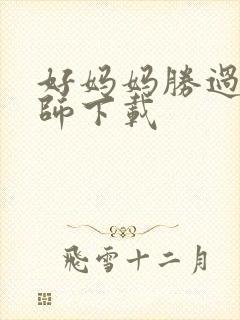 好妈妈勝過
師下載
飛雪十二月